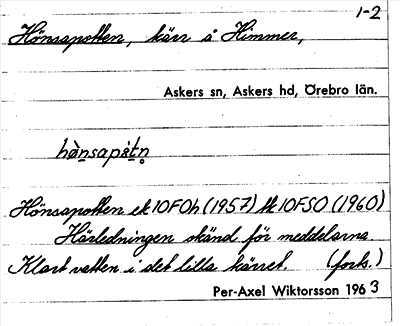 1-2
Hönsapotten, kärr å Himmer,
Askers sn, Askers hd, Örebro län.
Hönsapotten ek 10FOh (1957) tk 10F5O (1960)
Härledningen okänd för meddelarna.
Klart vatten i det lilla kärret. (forts.)
Per-Axel Wiktorsson 1963